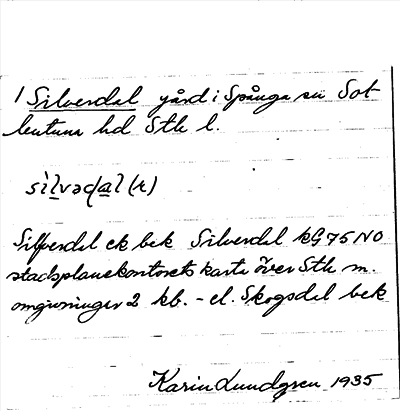 / Silverdal gård i Spånga sn Sol
lentuna hd Sth l.
sìlvədal (r)
Silfverdal ek bek Silverdal KG 75 NO
stadsplanekontorets karta över Sth m.
omgivningar 2 kb. - el. Skogsdal bek
Karin Lundgren 1935